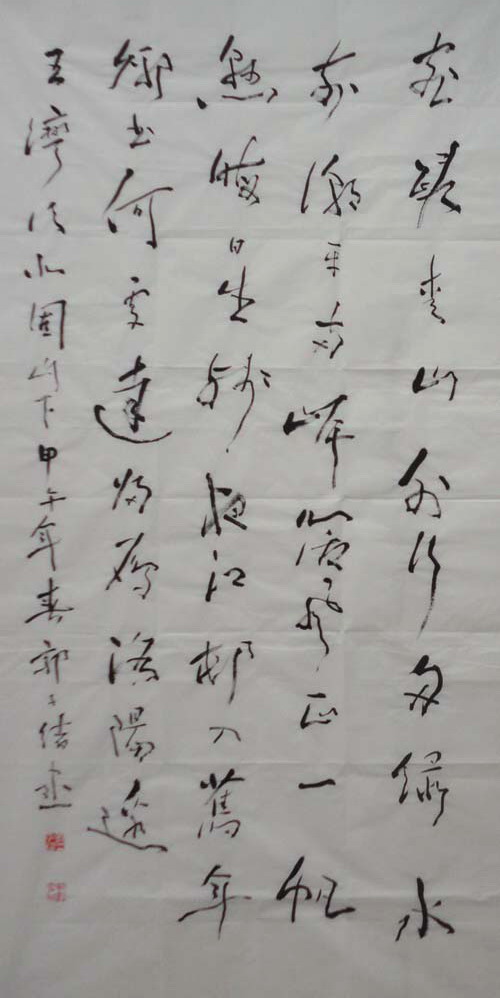 客路青山外行舟綠水
前潮平兩岸闊風正一帆
懸海日生殘夜江邨入舊年
鄉書何處達歸雁洛陽邊
王灣次北固山下甲午年春郭書